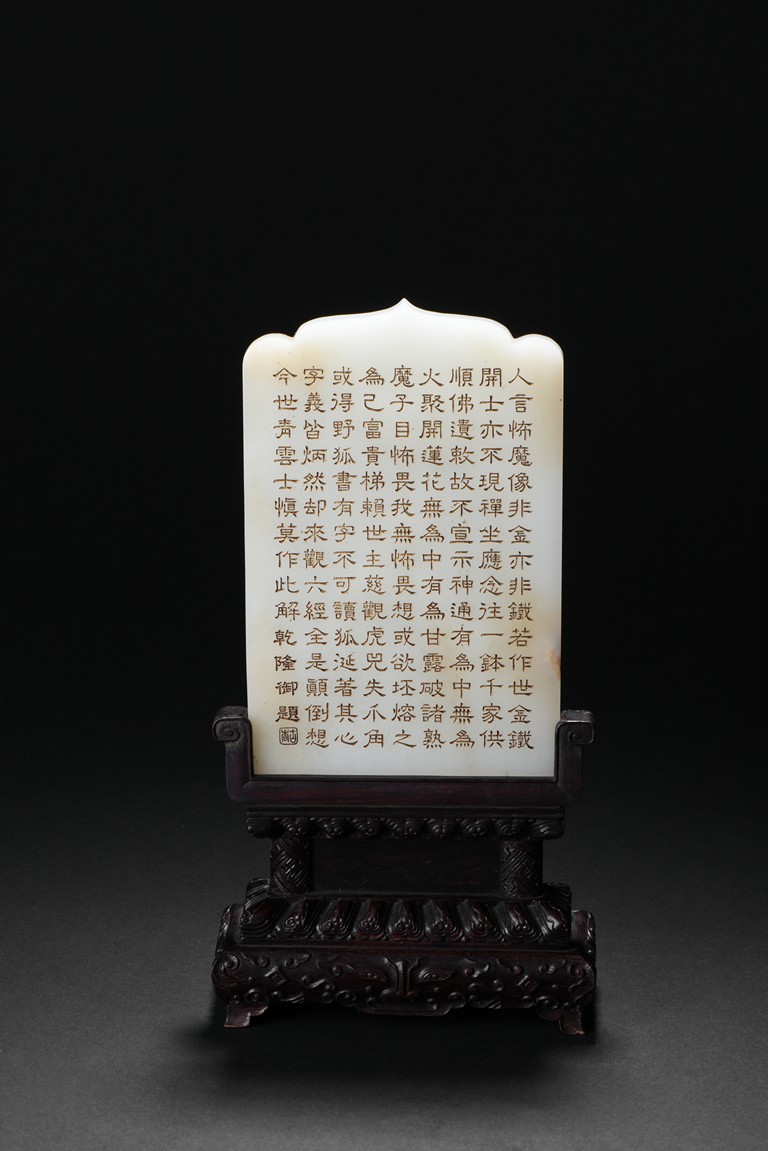 人言怖魔像非金亦非鐵若作世金鐵
開士亦不現禪坐應念往一鉢千家供
順佛遺敕故不宣示神通有為中無為
火聚開蓮花無為中有為甘露破諸熟
魔子目怖畏我無怖畏想或欲坯熔之
為己富貴梯賴世主慈觀虎兕失爪角
或得野狐書有字不可讀狐涎著其心
字義皆炳然却來觀六經全是顚倒想
今世青雲士慎莫作此解乾隆御題